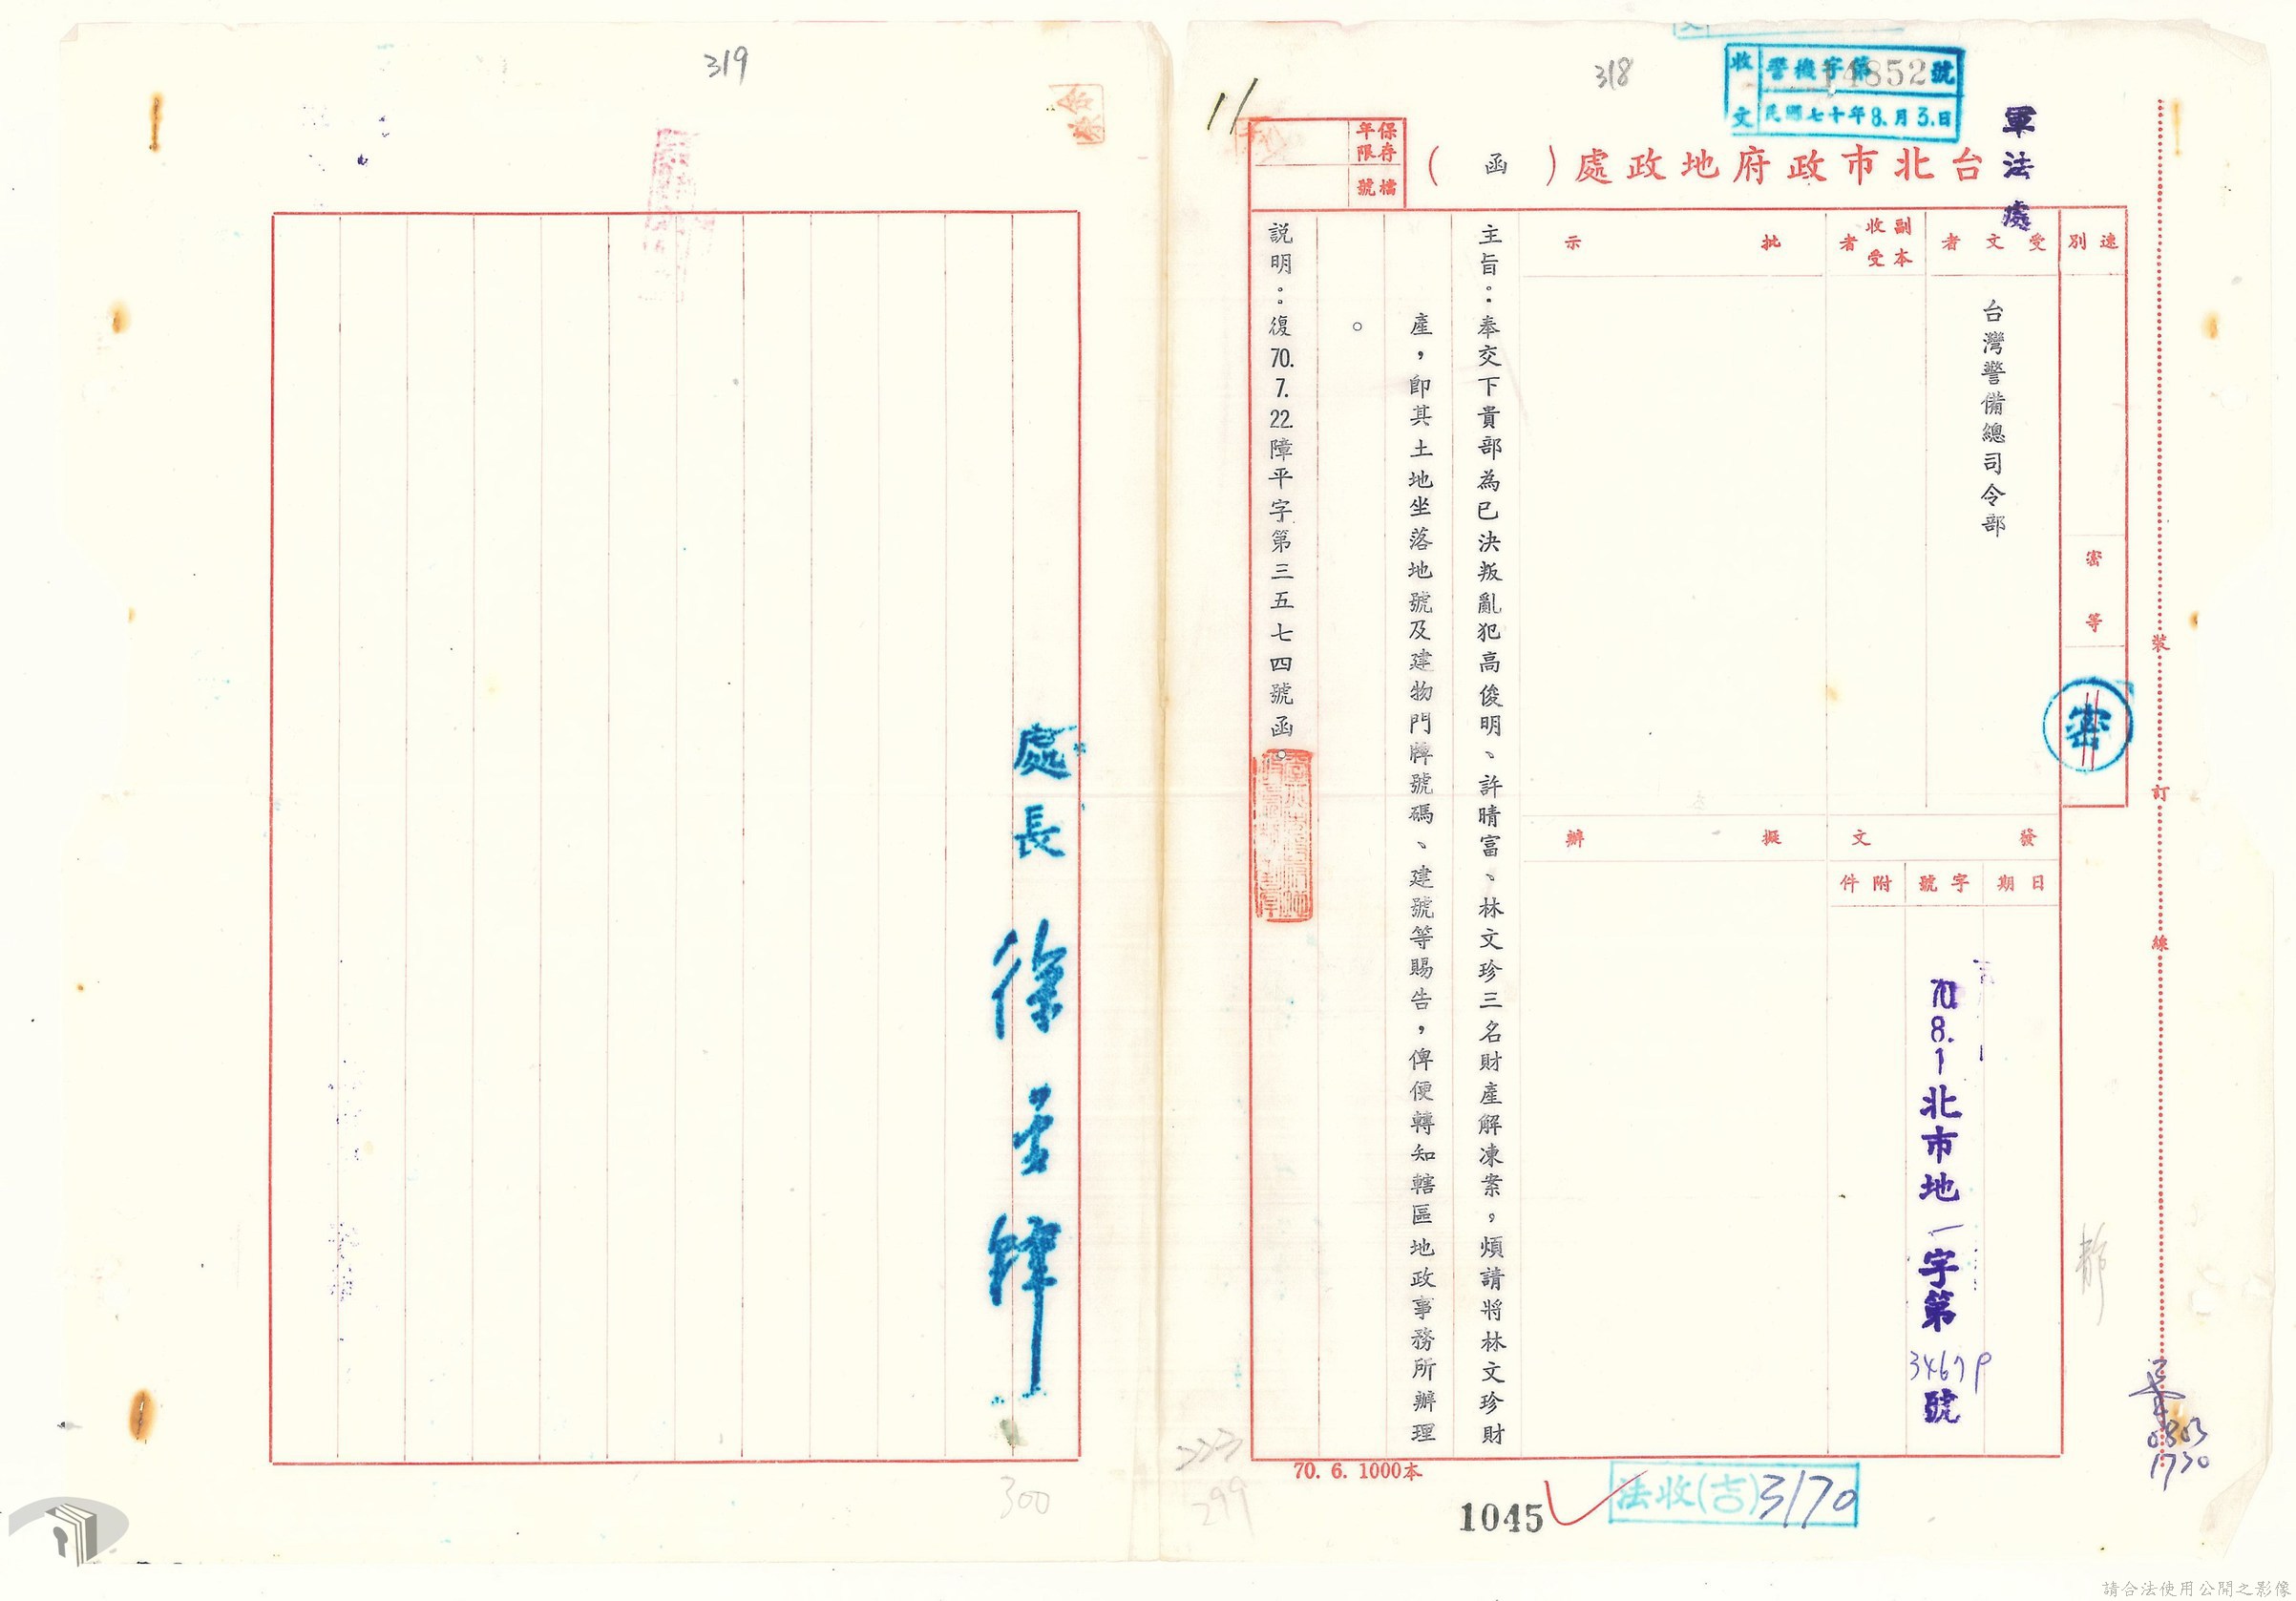 318
收文
警機字第14852號
民國七十年8.月3.日
軍法處
台北市政府地政處(函)
保存年限
檔號
速別
密等
密
受文者
台灣警備總司令部
副本收受者
批示
擬辦
發文
日期
字號
附件
70.8.1北市地一字第34679號
主旨：奉交下貴部為已決叛亂犯高俊明、許晴富、林文珍三名財產解凍案，煩請將林文珍財
產，即其土地坐落地號及建物門牌號碼、建號等賜告，俾便轉知轄區地政事務所辦理
。
說明：復70.7.22.障平字第三五七四號函。
裝
訂
線
0803
1730
70. 6. 1000本
1045
法收(吉)3170
299
319
處長
300
請合法使用公開之影像